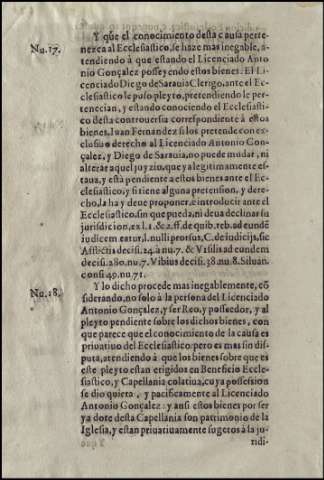 Nu.17.
Y que el conocimiento desta causa pertenezca al Ecclesiastico, se haze mas inegable, atendiendo
à que estando el Licenciado Antonio
Gonçalez posseyendo estos bienes. El Licenciado
Diego de Sarauia Clerigo, ante el Ecclesiastico
le puso pleyto, pretendiendo le pertenecian,
y estando conociendo el Ecclesiastico
desta controuersia correspondiente à estos
bienes, Iuan Fernandez si los pretende con exclusiuo
derecho al Licenciado Antonio Gonçalez,
y Diego de Sarauia, no puede mudar, ni
alterar aquel juyzio, que ya legitimamente estaua,
y està pendiente a estos bienes ante el Ecclesiastico;
y si tiene alguna pretension, y derecho,
la ha y deue proponer, è introducir ante el
Ecclesiastico, sin que pueda, ni deua declinar su
jurisdicion, ex l. 1. & 2. ff. de quib. reb. ad eundẽ
iudicem eatur, l. nulli prorsus, C. de iudicijs, sic
Afflictis decisi. 24. à nu. 7. & Vrsilis ad eundem
decisi. 280. nu. 7. Vibius decisi. 38. nu. 8. Siluan.
consi. 49. nu. 71.
Nu.18.
Y lo dicho procede mas inegablemente, cõsiderando,
no solo à la persona del Licenciado
Antonio Gonçalez, y ser Reo, y possedor, y al
pleyto pendiente sobre los dichos bienes, con
que parece que el conocimiento de la causa es
priuatiuo del Ecclesiastico: pero es mas sin disputa,
atendiendo à que los bienes sobre que es
este pleyto estan erigidos en Beneficio Ecclesiastico,
y Capellania colatiua, cuya possession
se dio quieta, y pacificamente al Licenciado
Antonio Gonçalez: y ansi estos bienes por ser
ya dote desta Capellania son patrimonio de la
Iglesia, y estan priuatiuamente sugetos à la juridi-